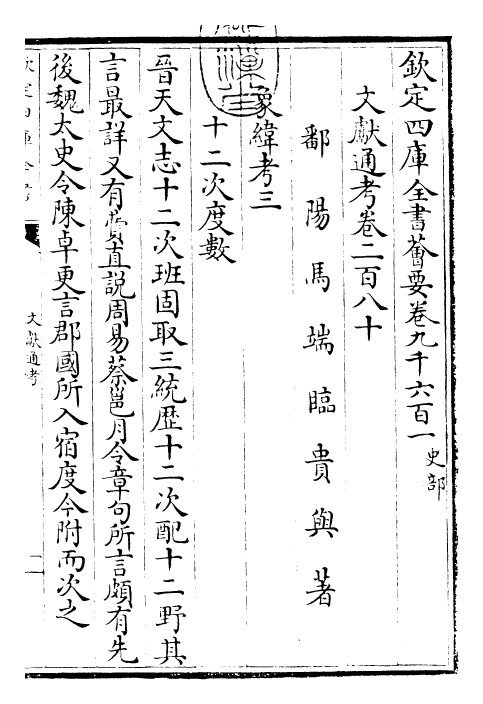 欽定四庫全書薈要卷九千六百一 史部
文獻通考卷二百八十
鄱陽馬端臨貴與著
象緯考三
十二次度數
晉天文志十二次班固取三統歷十二次配十二野其
言最詳又有費直說周易蔡邕月令章句所言頗有先
後魏太史令陳卓更言郡國所入宿度今附而次之
文獻通考